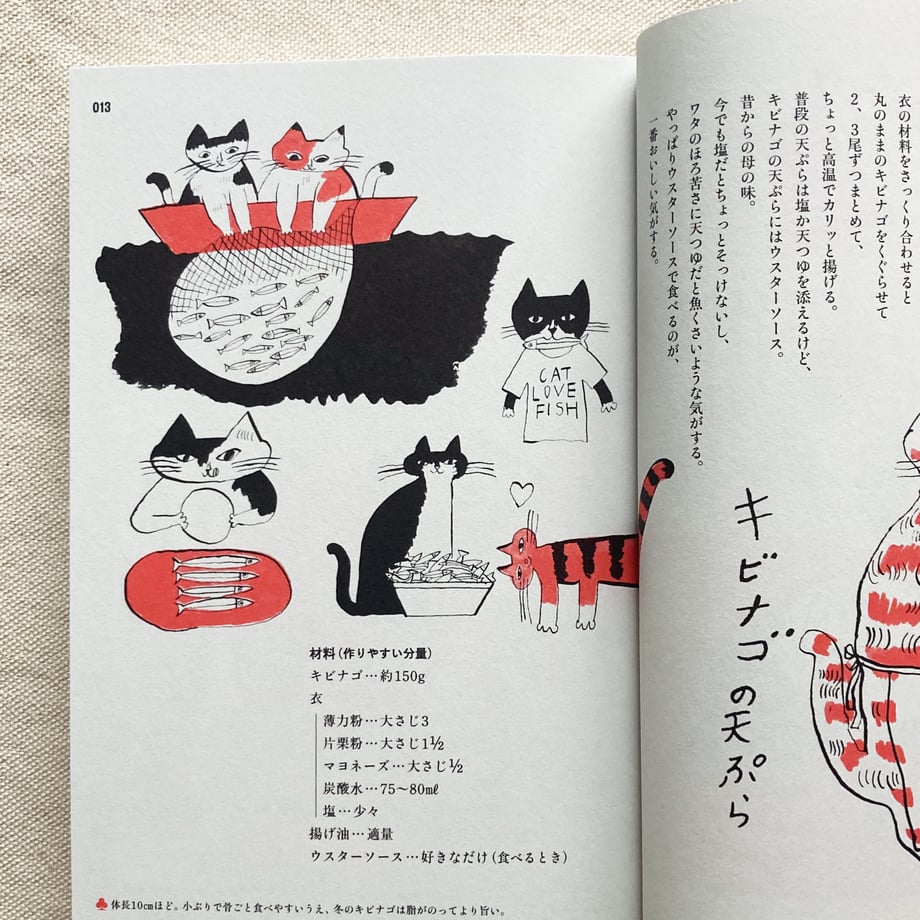 衣の材料をさっくり合わせると
丸のままのキビナゴをくぐらせて
2、3尾ずつまとめて、
ちょっと高温でカリッと揚げる。
普段の天ぷらは塩か天つゆを添えるけど、
キビナゴの天ぷらにはウスターソース。
昔からの母の味。
今でも塩だとちょっとそっけないし、
ワタのほろ苦さに天つゆだと魚くさいような気がする。
やっぱりウスターソースで食べるのが、
一番おいしい気がする。
キビナゴの天ぷら
013
CAT
LOVE
FISH
材料(作りやすい分量)
キビナゴ…約150g
衣
薄力粉…大さじ3
片栗粉…大さじ1½
マヨネーズ…大さじ½
炭酸水…75〜80mℓ
塩…少々
揚げ油…適量
ウスターソース…好きなだけ(食べるとき)
♣体長10㎝ほど。小ぶりで骨ごと食べやすいうえ、冬のキビナゴは脂がのってより旨い。